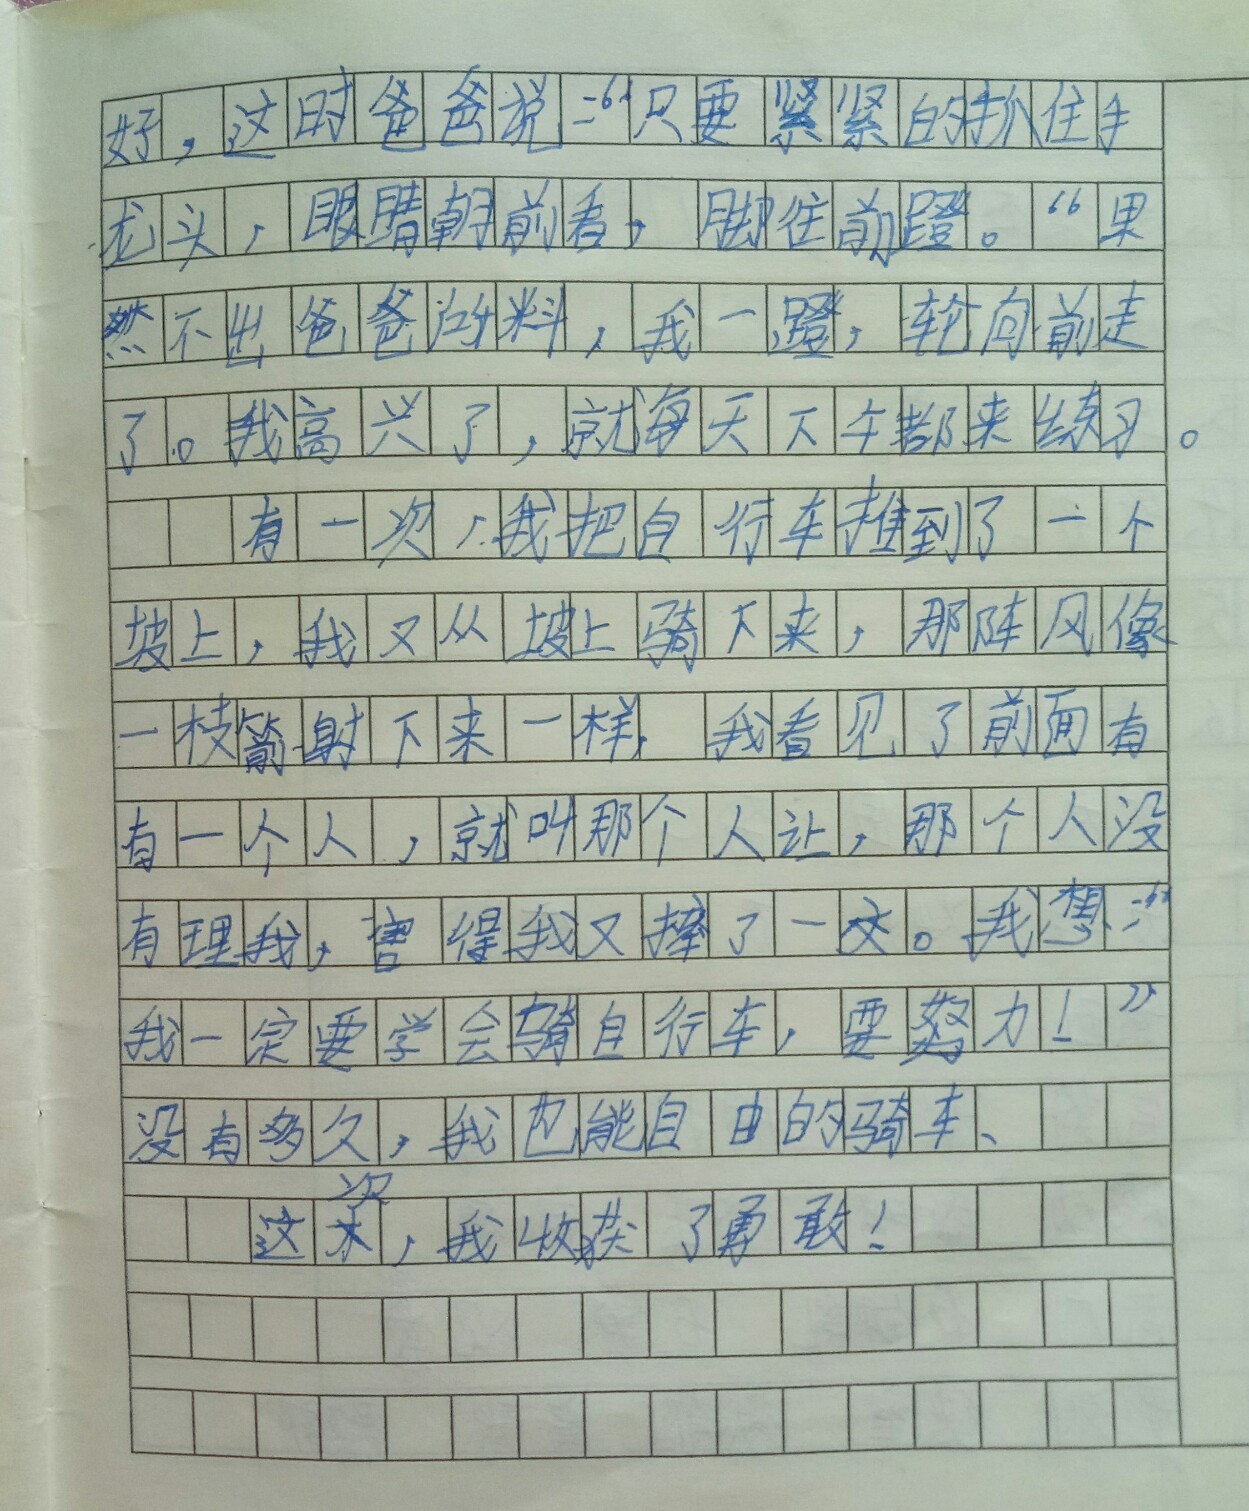 好，这时爸爸说：“只要紧紧的抓住手
龙头，眼睛朝前看，脚往前蹬。“果
然不出爸爸所料，我一蹬，轮向前走
了。我高兴了，就每天下午都来练习。
有一次，我把自行车推到了一个
坡上，我又从坡上骑下来，那阵风像
一枝箭射下来一样，我看见了前面有
有一个人，就叫那个人让，那个人没
有理我，害得我又摔了一交。我想：“
我一定要学会骑自行车，要努力！”
没有多久，我也能自由的骑车、
这次，我收获了勇敢！